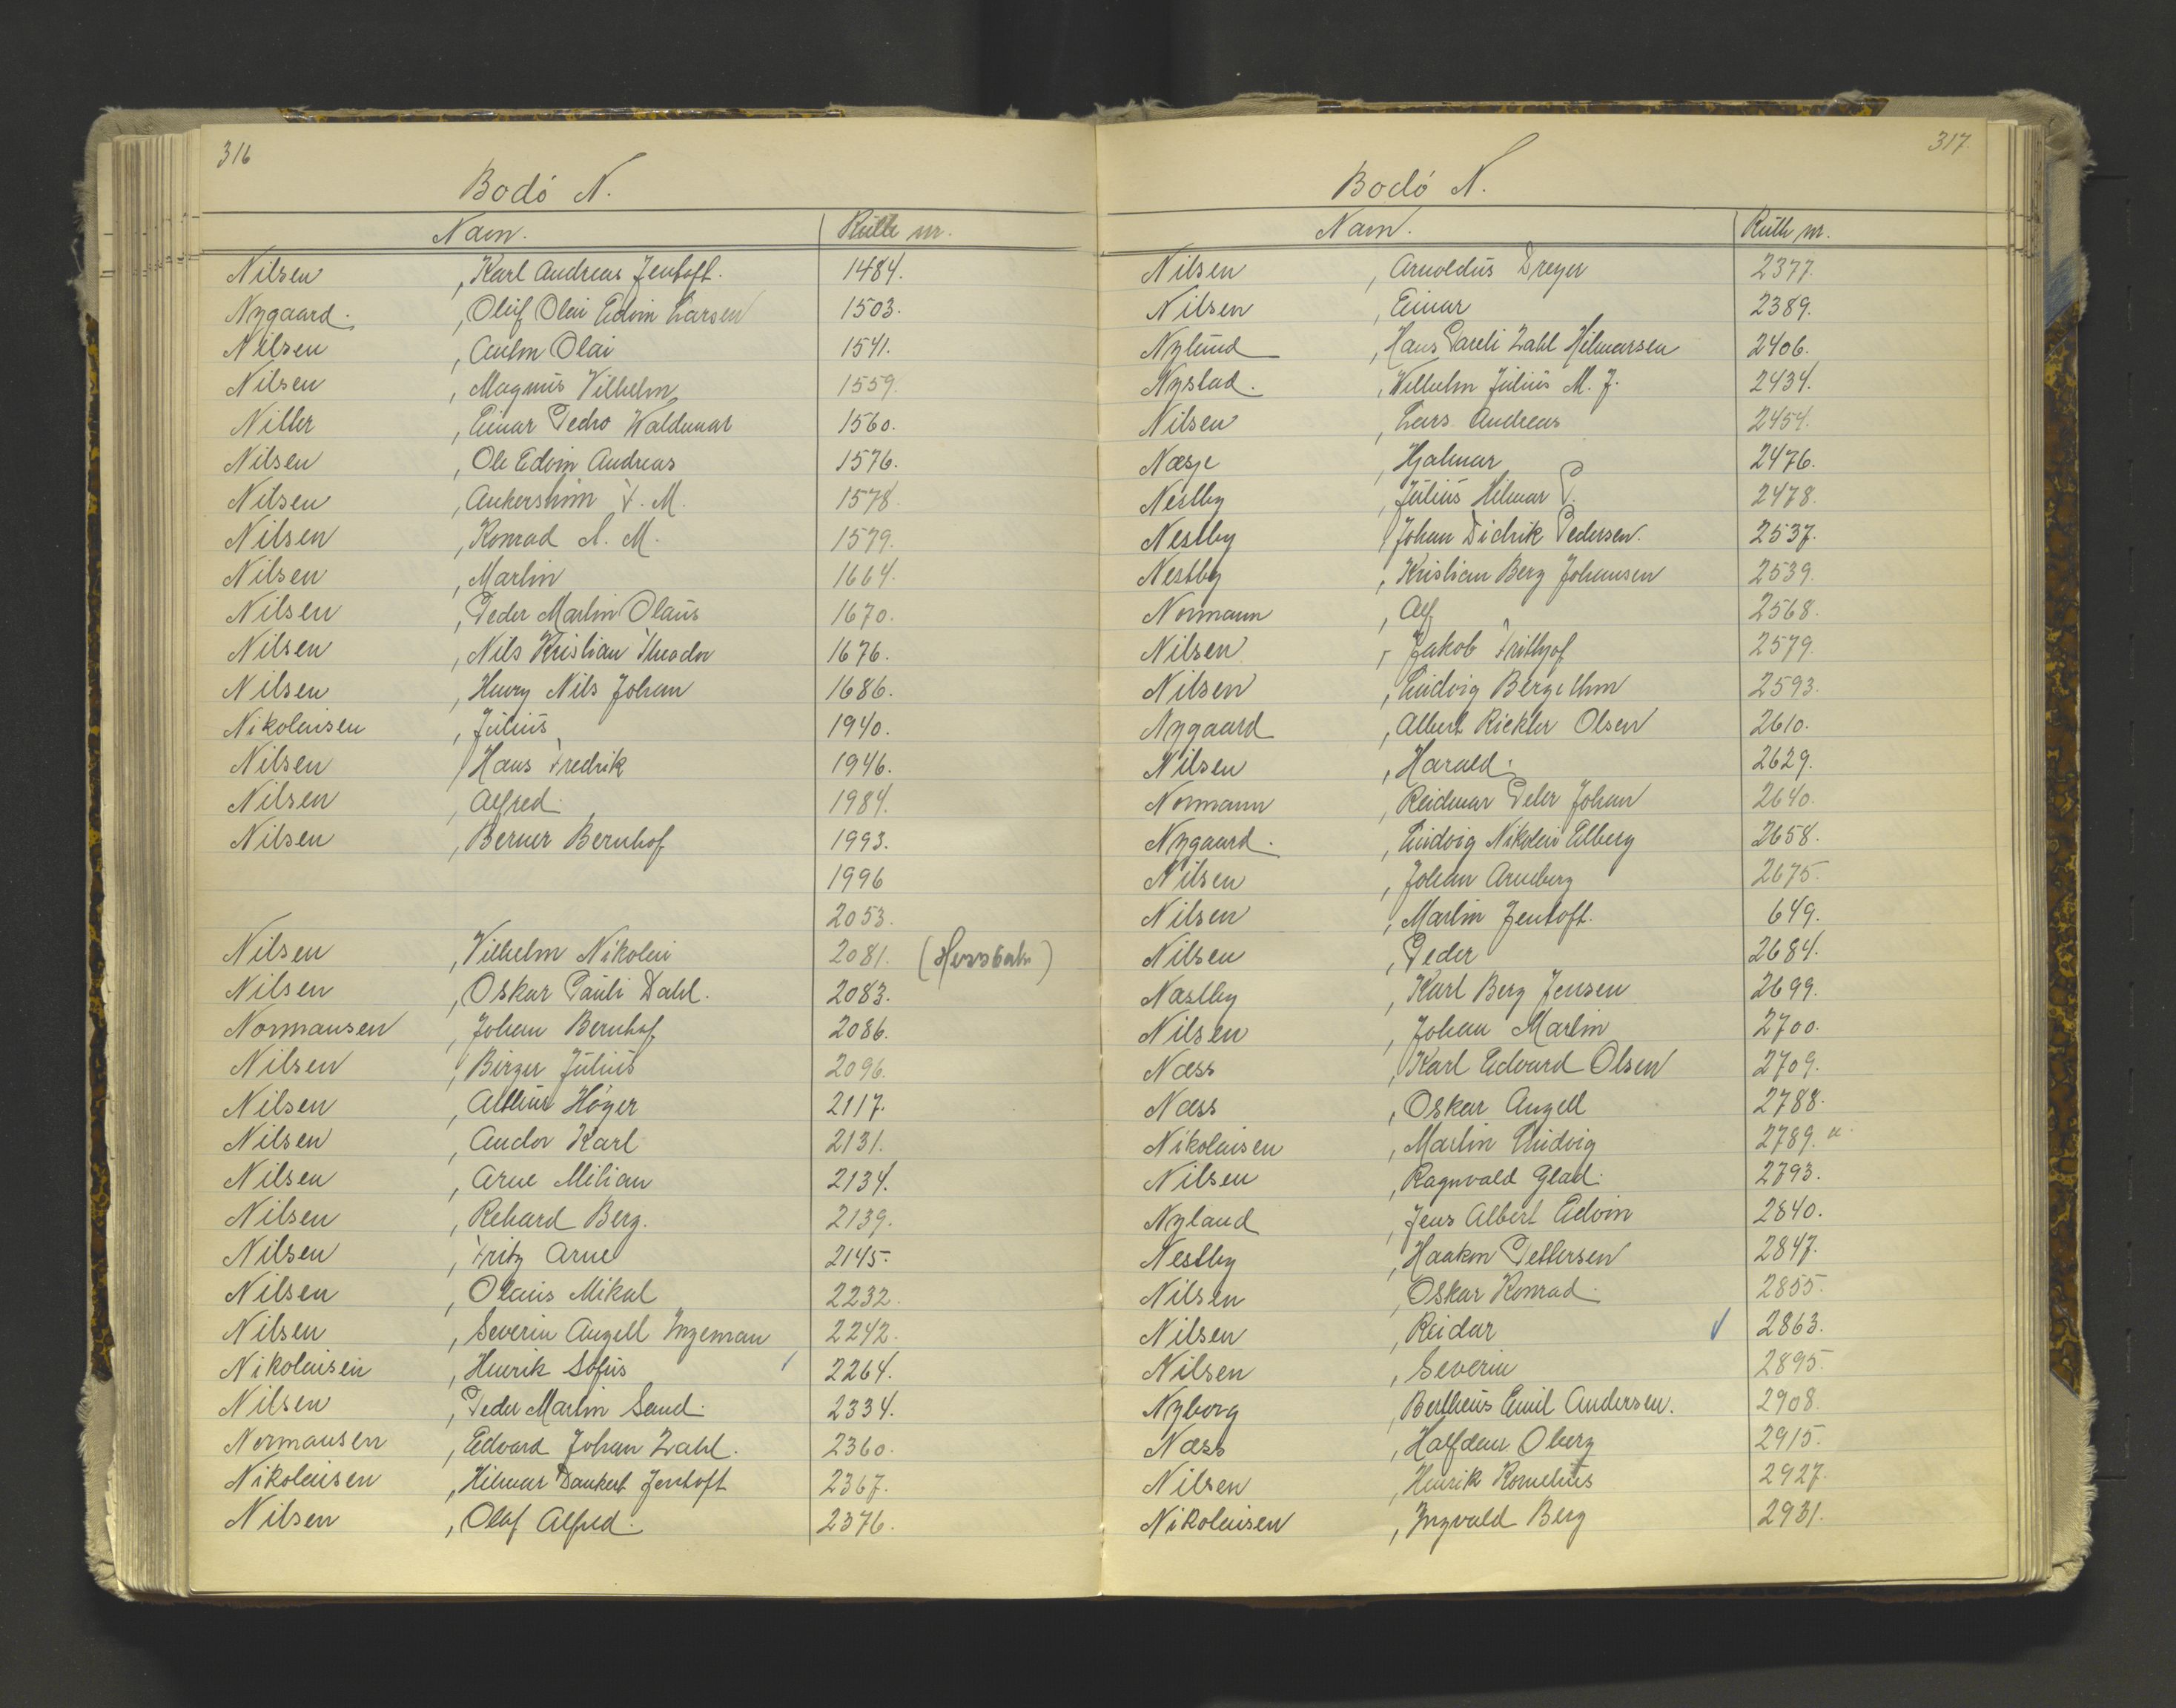 316
Bodó N.
Navn. Rulle nr.
Nilsen , Karl Andreas Jentoft. 1484.
Nygaard. , Oluf Olai Edvin Larsen 1503.
Nilsen , Anton Olai 1541.
Nilsen , Magnus Vilhelm 1559.
Nitter , Einar Pedro Waldemar 1560.
Nilsen , Ole Edvin Andreas 1576.
Nilsen , F. M. 1578.
Nilsen , Konrad S. M. 1579.
Nilsen , Martin 1664.
Nilsen , Peder Martin Olaus 1670.
Nilsen , Nils Kristian Theodor 1676.
Nilsen , Henry Nils Johan 1686.
Nikolaisen , Julius 1940.
Nilsen , Hans Fredrik 1946.
Nilsen , Alfred. 1984.
Nilsen , Berner Bernhof 1993.
1996
2053.
Nilsen , Vilhelm Nikolai 2081.
Nilsen , Oskar Pauli Dahl. 2083.
Normansen , Johan Bernhof 2086.
Nilsen , Birger Julius 2096.
Nilsen , Høyer 2117.
Nilsen , Andor Karl 2131.
Nilsen , Arne Milian 2134.
Nilsen , Rehard Berg. 2139.
Nilsen , Fritz Arne 2145.
Nilsen , Olaus Mikal 2232.
Nilsen , Severin Angell Ingeman 2242.
Nikolaisen , Henrik Sofus 2264.
Nilsen , Peder Martin Sand. 2334.
Normansen , Edvard Johan Zahl. 2360.
Nikolaisen , Hilmar Dankert Jentoft 2367.
Nilsen , Olaf Alfred. 2376.
317.
Bodó N.
Navn. Rulle nr.
Nilsen , Arnoldus Dreyer 2377.
Nilsen , Einar 2389.
Nylund , Hans Pareli Zahl Hilmarsen 2406.
Nystad. , Wilhelm Julius M. J. 2434.
Nilsen , Lars Andreas 2454.
Næsje , Hjalmar 2476.
Nestby , Julius Hilmar P. 2478.
Nestby , Johan Didrik Pedersen. 2537.
Nestby , Kristian Berg Johansen 2539.
Normann , Alf 2568.
Nilsen , Jakob Frithjof 2579.
Nilsen , Ludvig Bergethon 2593.
Nygaard , Albert Rickter Olsen 2610.
Nilsen , Harald. 2629.
Normann , Reidmar Peter Johan 2640.
Nygaard. , Ludvig Nikolai Elberg 2658.
Nilsen , Johan Arneberg 2675.
Nilsen , Martin Jentoft. 649.
Nilsen , Peder 2684.
Næstby , Karl Berg Jensen 2699.
Nilsen , Johan Martin 2700.
Næss , Karl Edvard Olsen 2709.
Næss , Oskar Angell 2788.
Nikolaisen , Martin Ludvig 2789. a.
Nilsen , Ragnvald Glad. 2793.
Nyland , Jens Albert Edvin 2840.
Nestby , Haakon Pettersen 2847.
Nilsen , Oskar Konrad. 2855.
Nilsen , Reidar 2863.
Nilsen , Severin 2895.
Nyborg , Bertheus Emil Andersen. 2908.
Næss , Halfdan Oberg 2915.
Nilsen , Henrik Kornelius 2927.
Nikolaisen , Ingvald Berg 2931.